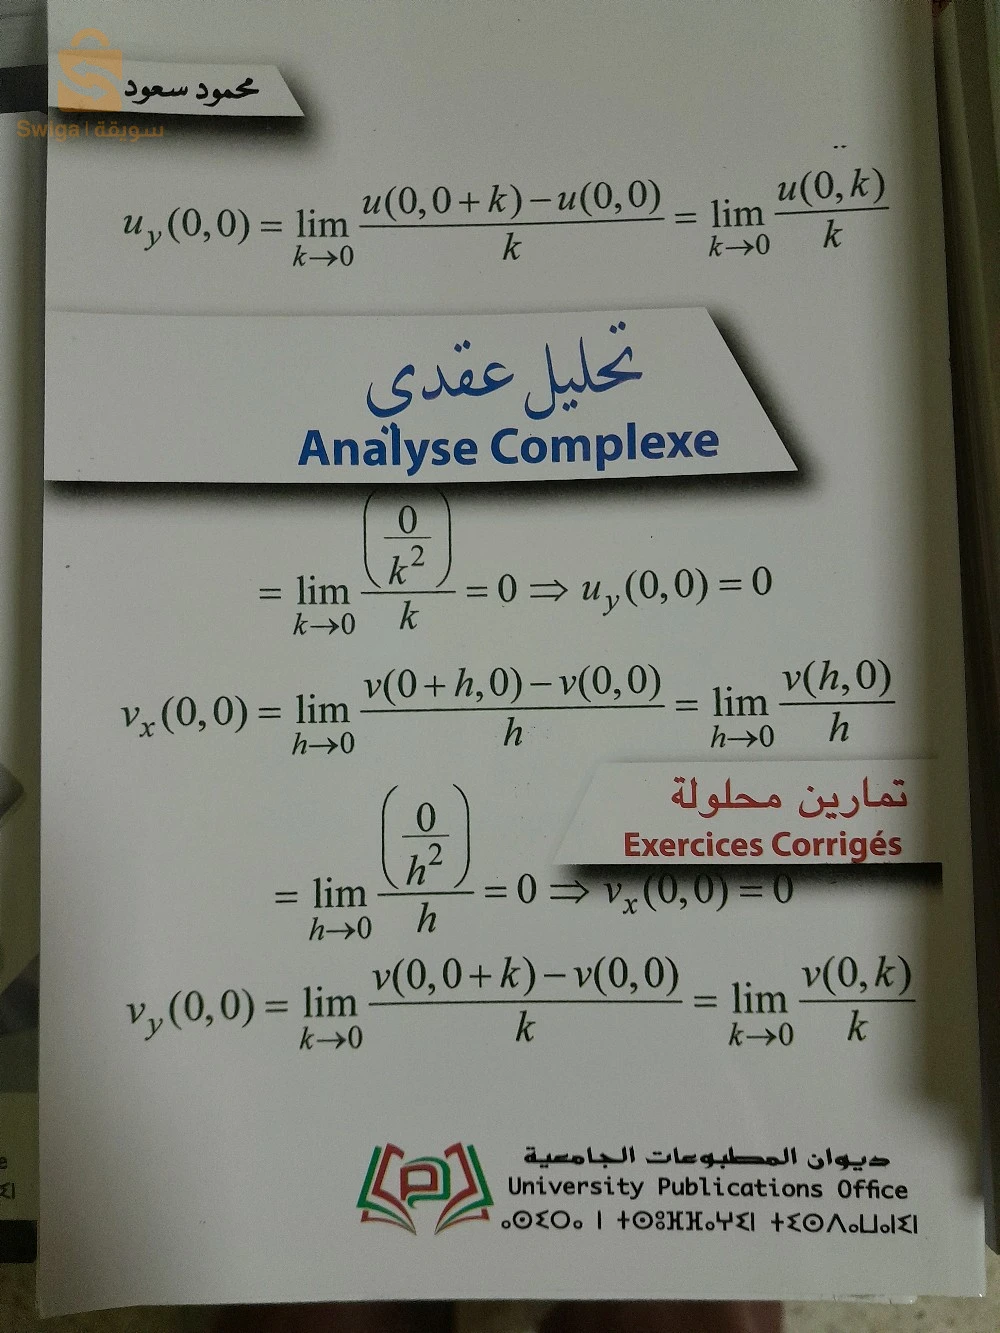 محمود سعود
Swiga | سويقة
u_y(0,0) = lim_{k→0} (u(0,0+k)−u(0,0))/k = lim_{k→0} u(0,k)/k
تحليل عقدي
Analyse Complexe
= lim_{k→0} (0/k²)/k = 0 ⇒ u_y(0,0) = 0
v_x(0,0) = lim_{h→0} (v(0+h,0)−v(0,0))/h = lim_{h→0} v(h,0)/h
تمارين محلولة
Exercices Corrigés
= lim_{h→0} (0/h²)/h = 0 ⇒ v_x(0,0) = 0
v_y(0,0) = lim_{k→0} (v(0,0+k)−v(0,0))/k = lim_{k→0} v(0,k)/k
ديوان المطبوعات الجامعية
University Publications Office
ⴰⵙⵉⵔⴰ ⵏ ⵜⵙⵓⴼⴼⴰⵖⵉⵏ ⵜⵉⵙⴷⴰⵡⴰⵏⵉⵏ